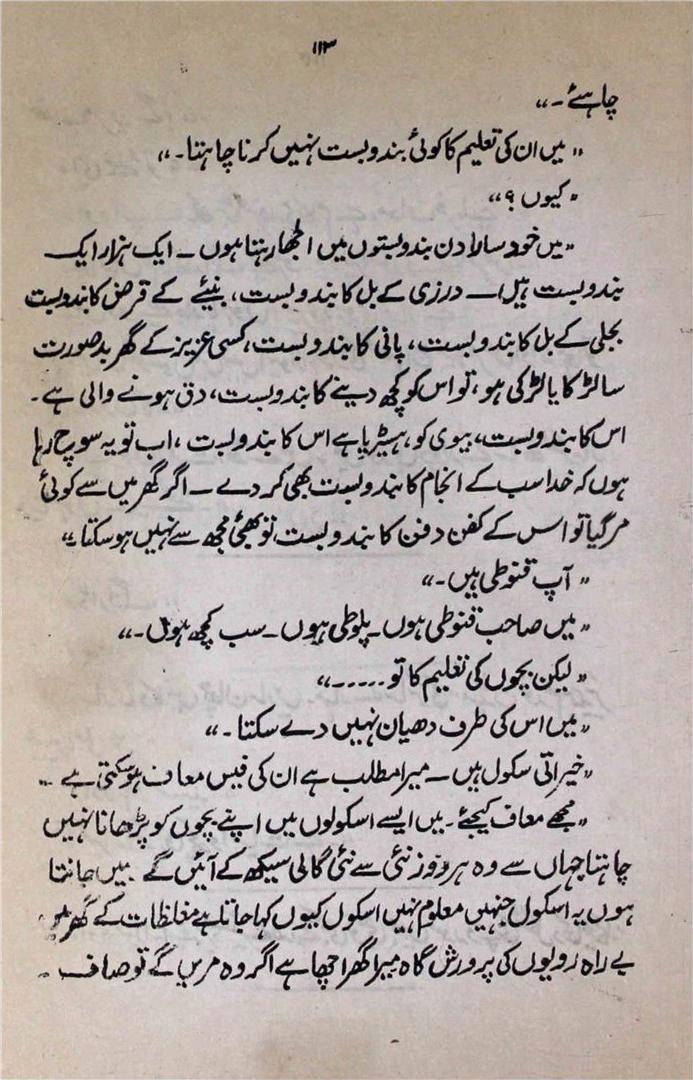 ۱۱۳
چاہئے۔“
”میں ان کی تعلیم کا کوئی بندوبست نہیں کرنا چاہتا۔“
”کیوں؟“
”میں خود سارا دن بندوبستوں میں الجھا رہتا ہوں۔ ایک ہزار ایک
بندوبست ہیں۔ درزی کے بل کا بندوبست، بنیئے کے قرض کا بندوبست
بجلی کے بل کا بندوبست، پانی کا بندوبست، کسی عزیز کے گھر بدصورت
سا لڑکا یا لڑکی ہو، تو اس کو کچھ دینے کا بندوبست، دق ہونے والی ہے۔
اس کا بندوبست، بیوی کو، ہیسٹریا ہے اس کا بندوبست، اب تو یہ سوچ رہا
ہوں کہ خدا سب کے انجام کا بندوبست بھی کر دے۔ اگر گھر میں سے کوئی
مر گیا تو اس کے کفن دفن کا بندوبست تو بھئی مجھ سے نہیں ہو سکتا۔“
”آپ قنوطی ہیں۔“
”میں صاحب قنوطی ہوں۔ پلوطی ہوں۔ سب کچھ ہوں۔“
”لیکن بچوں کی تعلیم کا تو۔۔۔۔۔“
”میں اس کی طرف دھیان نہیں دے سکتا۔“
”خیراتی سکول ہیں۔ میرا مطلب ہے ان کی فیس معاف ہو سکتی ہے۔
”مجھے معاف کیجئے۔ میں ایسے اسکولوں میں اپنے بچوں کو پڑھانا نہیں
چاہتا جہاں سے وہ ہر روز نئی سے نئی گالی سیکھ کے آئیں گے میں جانتا
ہوں یہ اسکول جنہیں معلوم نہیں اسکول کیوں کہا جاتا ہے مغلظات کے گھر
بے راہ رویوں کی پرورش گاہ میرا گھر اچھا ہے اگر وہ مریں گے تو صاف